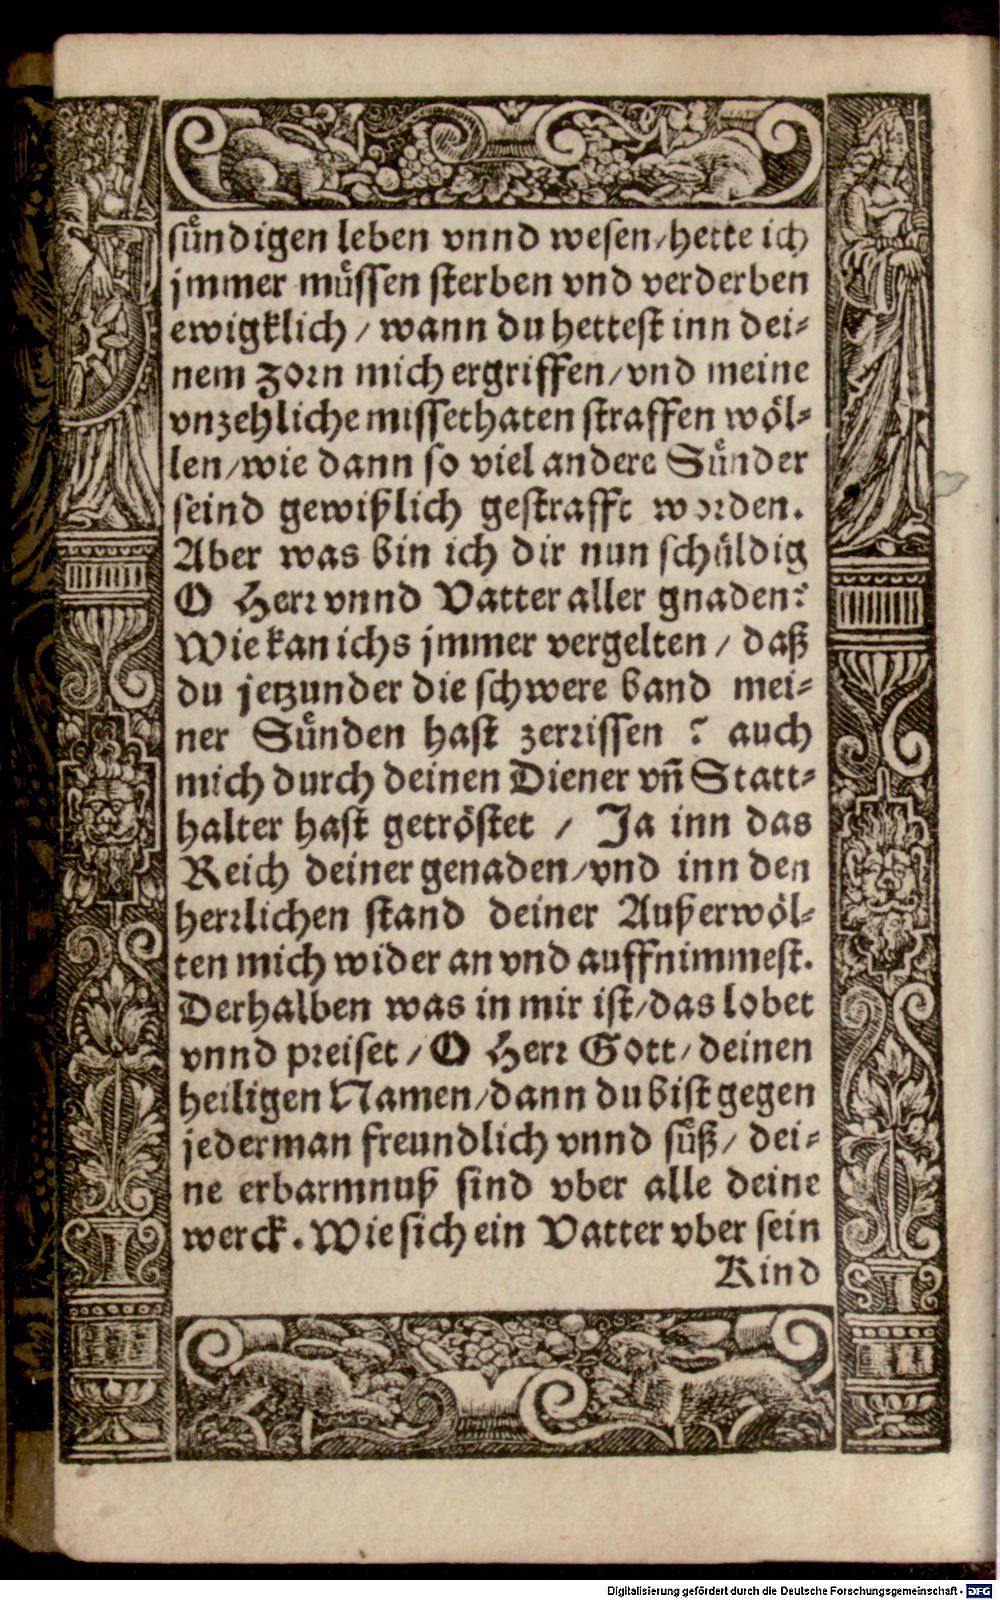 sündigen leben vnnd wesen/ hette ich
jmmer müssen sterben vnd verderben
ewigklich / wann du hettest inn dei-
nem zorn mich ergriffen/ vnd meine
vnzehliche missethaten straffen wöl-
len/ wie dann so viel andere Sünder
seind gewißlich gestrafft worden.
Aber was bin ich dir nun schüldig
O Herr vnnd Vatter aller gnaden?
Wie kan ichs jmmer vergelten / daß
du jetzunder die schwere band mei-
ner Sünden hast zerrissen ? auch
mich durch deinen Diener vñ Statt-
halter hast getröstet / Ja inn das
Reich deiner genaden/ vnd inn den
herrlichen stand deiner Außerwöl-
ten mich wider an vnd auffnimmest.
Derhalben was in mir ist/ das lobet
vnnd preiset / O Herr Gott/ deinen
heiligen Namen/ dann du bist gegen
jederman freundlich vnnd süß/ dei-
ne erbarmnuß sind vber alle deine
werck. Wie sich ein Vatter vber sein
Kind
Digitalisierung gefördert durch die Deutsche Forschungsgemeinschaft - DFG